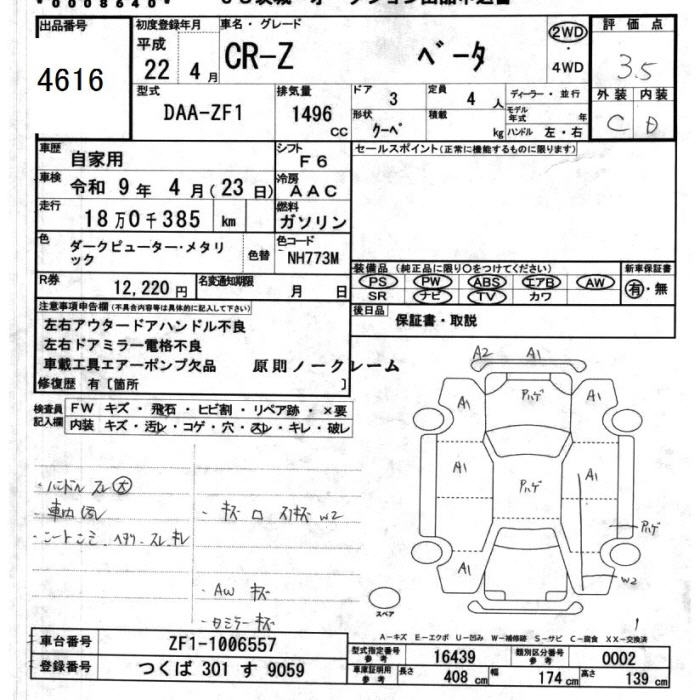 出品番号
4616
初度登録年月
平成
22 4 月
車名・グレード
CR-Z ベータ
2WD
・
4WD
評価点
3.5
外装 内装
C D
型式
DAA-ZF1
排気量
1496 CC
ドア 3
定員 4 人
形状 クーペ
積載 kg
ディーラー・並行
モデル年式 年
ハンドル 左・右
車歴 自家用
シフト F6
車検 令和 9 年 4 月(23 日)
冷房 AAC
走行 18 万 0 千 385 km
燃料 ガソリン
色 ダークピューター・メタリック
色替
色コード NH773M
R券 12,220 円
名変通知期限 月 日
セールスポイント(正常に機能するものに限ります)
装備品 (純正品に限り○をつけてください)
PS PW ABS エアB AW
SR ナビ TV カワ
新車保証書
有・無
後日品 保証書・取説
注意事項申告欄(不具合内容等は具体的に記入して下さい)
左右アウタードアハンドル不良
左右ドアミラー電格不良
車載工具エアーポンプ欠品 原則ノークレーム
修復歴 有〔箇所 〕
検査員記入欄
FW キズ・飛石・ヒビ割・リペア跡・×要
内装 キズ・汚レ・コゲ・穴・スレ・キレ・破レ
・ハンドル スレ 大
・車内 汚レ
・シートシミ・ヘタリ・スレ キレ
・AW キズ
・ドアミラーキズ
A2 A1
A1 ハゲ A1
A1 ハゲ A1
ハゲ
A1 W2
A1
スペア
A−キズ E−エクボ U−凹み W−補修跡 S−サビ C−腐食 XX−交換済
車台番号 ZF1-1006557
登録番号 つくば 301 す 9059
型式指定番号 参考 16439
類別区分番号 参考 0002
車庫証明用 参考 長さ 408 cm 幅 174 cm 高さ 139 cm